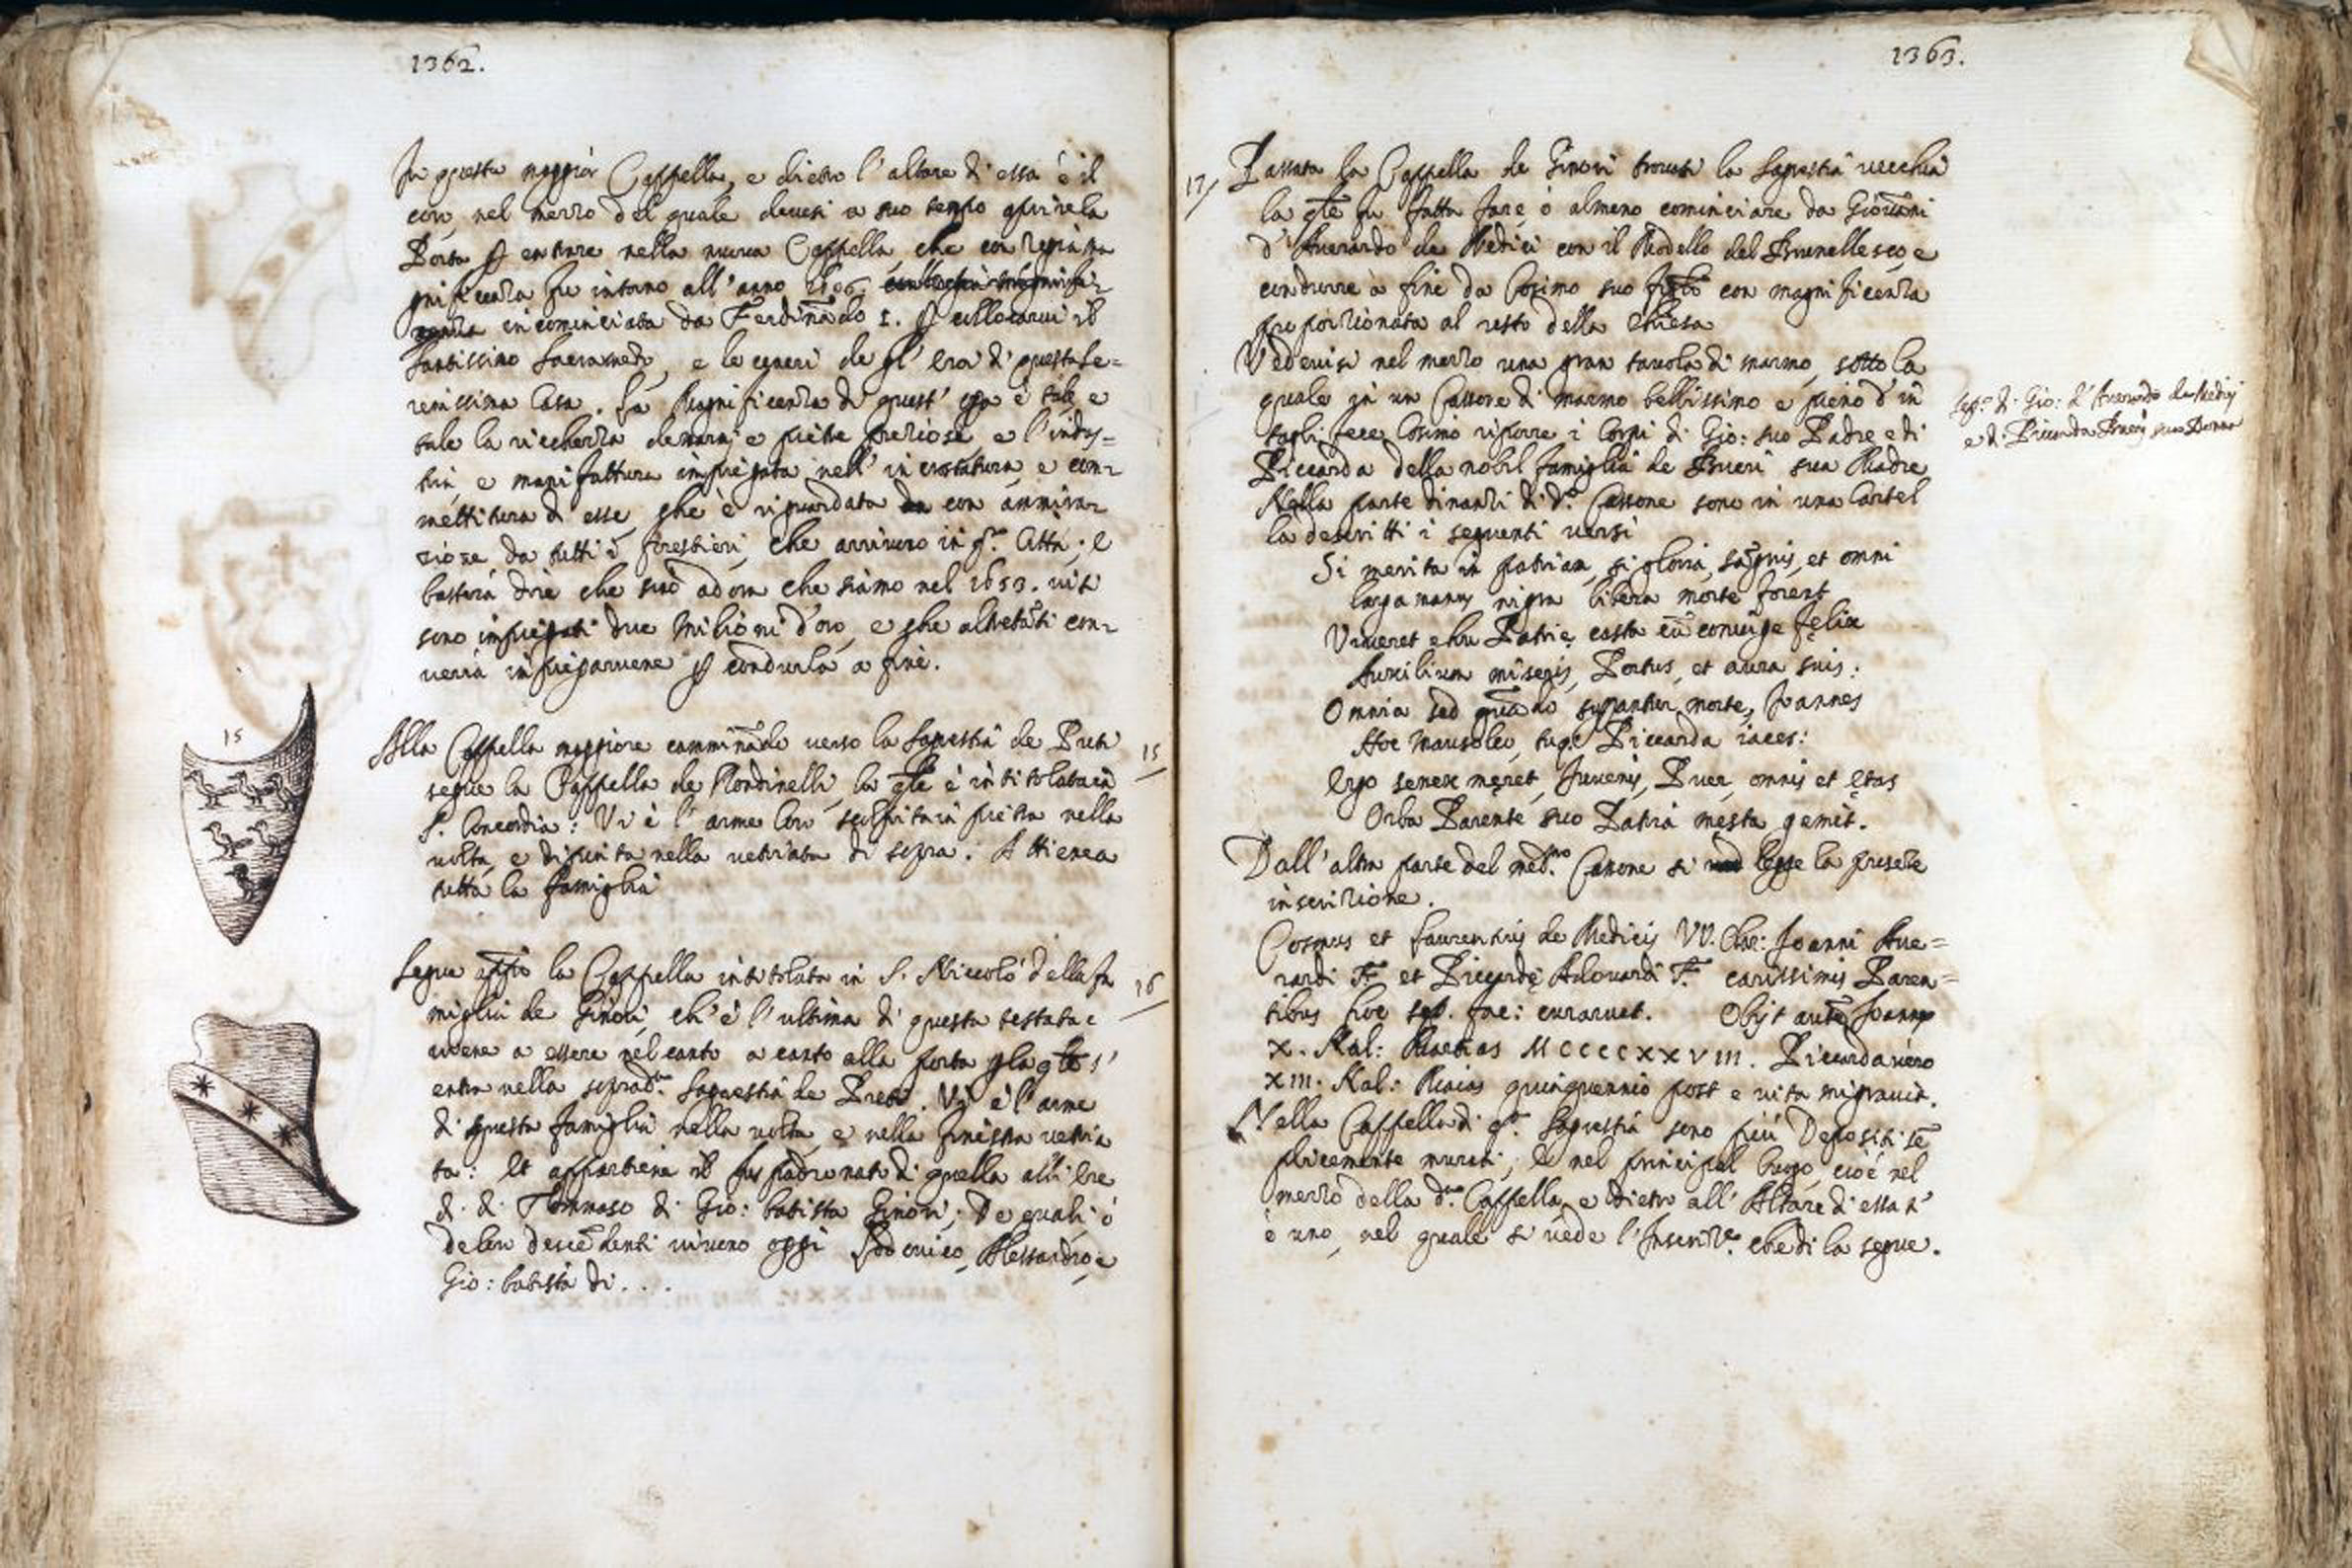 1362.
In questa maggior Cappella, e dietro l'altare di essa è il
coro, nel mezzo del quale devesi a suo tempo aprire la
Porta p entrare nella nuova Cappella, che con regia ma
gnificenza fu intorno all'anno 1606.
incominciata da Ferdinãdo I. p collocarui il
Santissimo Sacramẽto, e le ceneri de gl' Eroi di questa Se=
renissima Casa. La Magnificenza di quest' opa è tale e
tale la ricchezza de marmi e pietre preziose, e l'indus=
tria, e manifattura impiegata nell' incrostatura, e com-
mettitura di esse, che è riguardata con ammira-
zione da tutti i forestieri, che arrivano in q.ta Città; e
basterà dire che sino ad ora che siamo nel 1653. visi
sono impiegati due Milioni d'oro, e che altretãti con-
verrà impiegarvene p condurla a fine.
15
Alla Cappella maggiore camminãdo verso la Sagrestia de Preti
15
segue la Cappella de Rondinelli, la qle è intitolata in
S. Concordia: Vi è l'arme loro scolpita in pietra nella
volta, e dipinta nella vetriata di sopra. Attiene a
tutta la famiglia
Segue app.o la Cappella intitolata in S. Niccolò della fa
16
miglia de Ginori, ch'è l'ultima di questa testata e
viene a essere nel canto a canto alla porta p la qle s'
entra nella soprad.ta Sagrestia de Preti. Vi è l'arme
di questa famiglia nella volta, e nella finestra vetria
ta: Et appartiene il Jus padronato di quella alli Ere
di di Tommaso di Gio: batista Ginori; De quali ò
deloro descẽdenti vivono oggi Lodovico, Alessandro, e
Gio: batista di . . .
1363.
17/ Passata la Cappella de Ginori trovasi la Sagrestia vecchia
la qle fu fatta fare, ò almeno cominciare da Giovãni
d'Averardo de Medici con il Modello del Brunellesco, e
condurre à fine da Cosimo suo figlio con magnificenza
proporzionata al resto della Chiesa
Vedevisi nel mezzo una gran tavola di marmo, sotto la
quale in un Cassone di marmo bellissimo e pieno d'in
tagli fece Cosimo riporre i Corpi di Gio: suo Padre e di
Piccarda della nobil famiglia de Bueri sua Madre
Sep.o di Gio: d'Averardo de Medici
e di Piccarda Bueri sua Donna
Nella parte dinanzi di d.o Cassone sono in una Cartel
la descritti i seguenti versi
Si merita in patriam, si gloria, sãguis, et omni
larga manus nigra libera morte forent
Viveret eheu Patrię casta cũ coniuge felix
Auxilium miseris, Portus, et aura suis:
Omnia sed quãdo supantur morte, Joannes
Hoc Mausoleo, tuq: Piccarda iaces:
Ergo senex męret, Juvenis, Puer, omnis et ętas
Orba Parente suo Patria mesta gemit.
Dall'altra parte del med.mo Cassone si legge la presẽte
inscrizione.
Cosmus et Laurentius de Medicis VV. Clar: Joanni Ave=
rardi F. et Piccardę Adovardi F. carissimis Paren=
tibus hoc sep. fac: curarunt. Obijt autẽ Joannes
X. Kal: Martias MCCCCXXVIII. Piccarda vero
XIII. Kal: Maias quinquennio post e vita migravit.
Nella Cappella di q.ta Sagrestia sono più Depositi sẽ
plicemente murati; E nel principal luogo, cioè nel
mezzo della d.ta Cappella, e dietro all'Altare di essa v'
è uno, nel quale si vede l'Inscriz.e che di la segue.